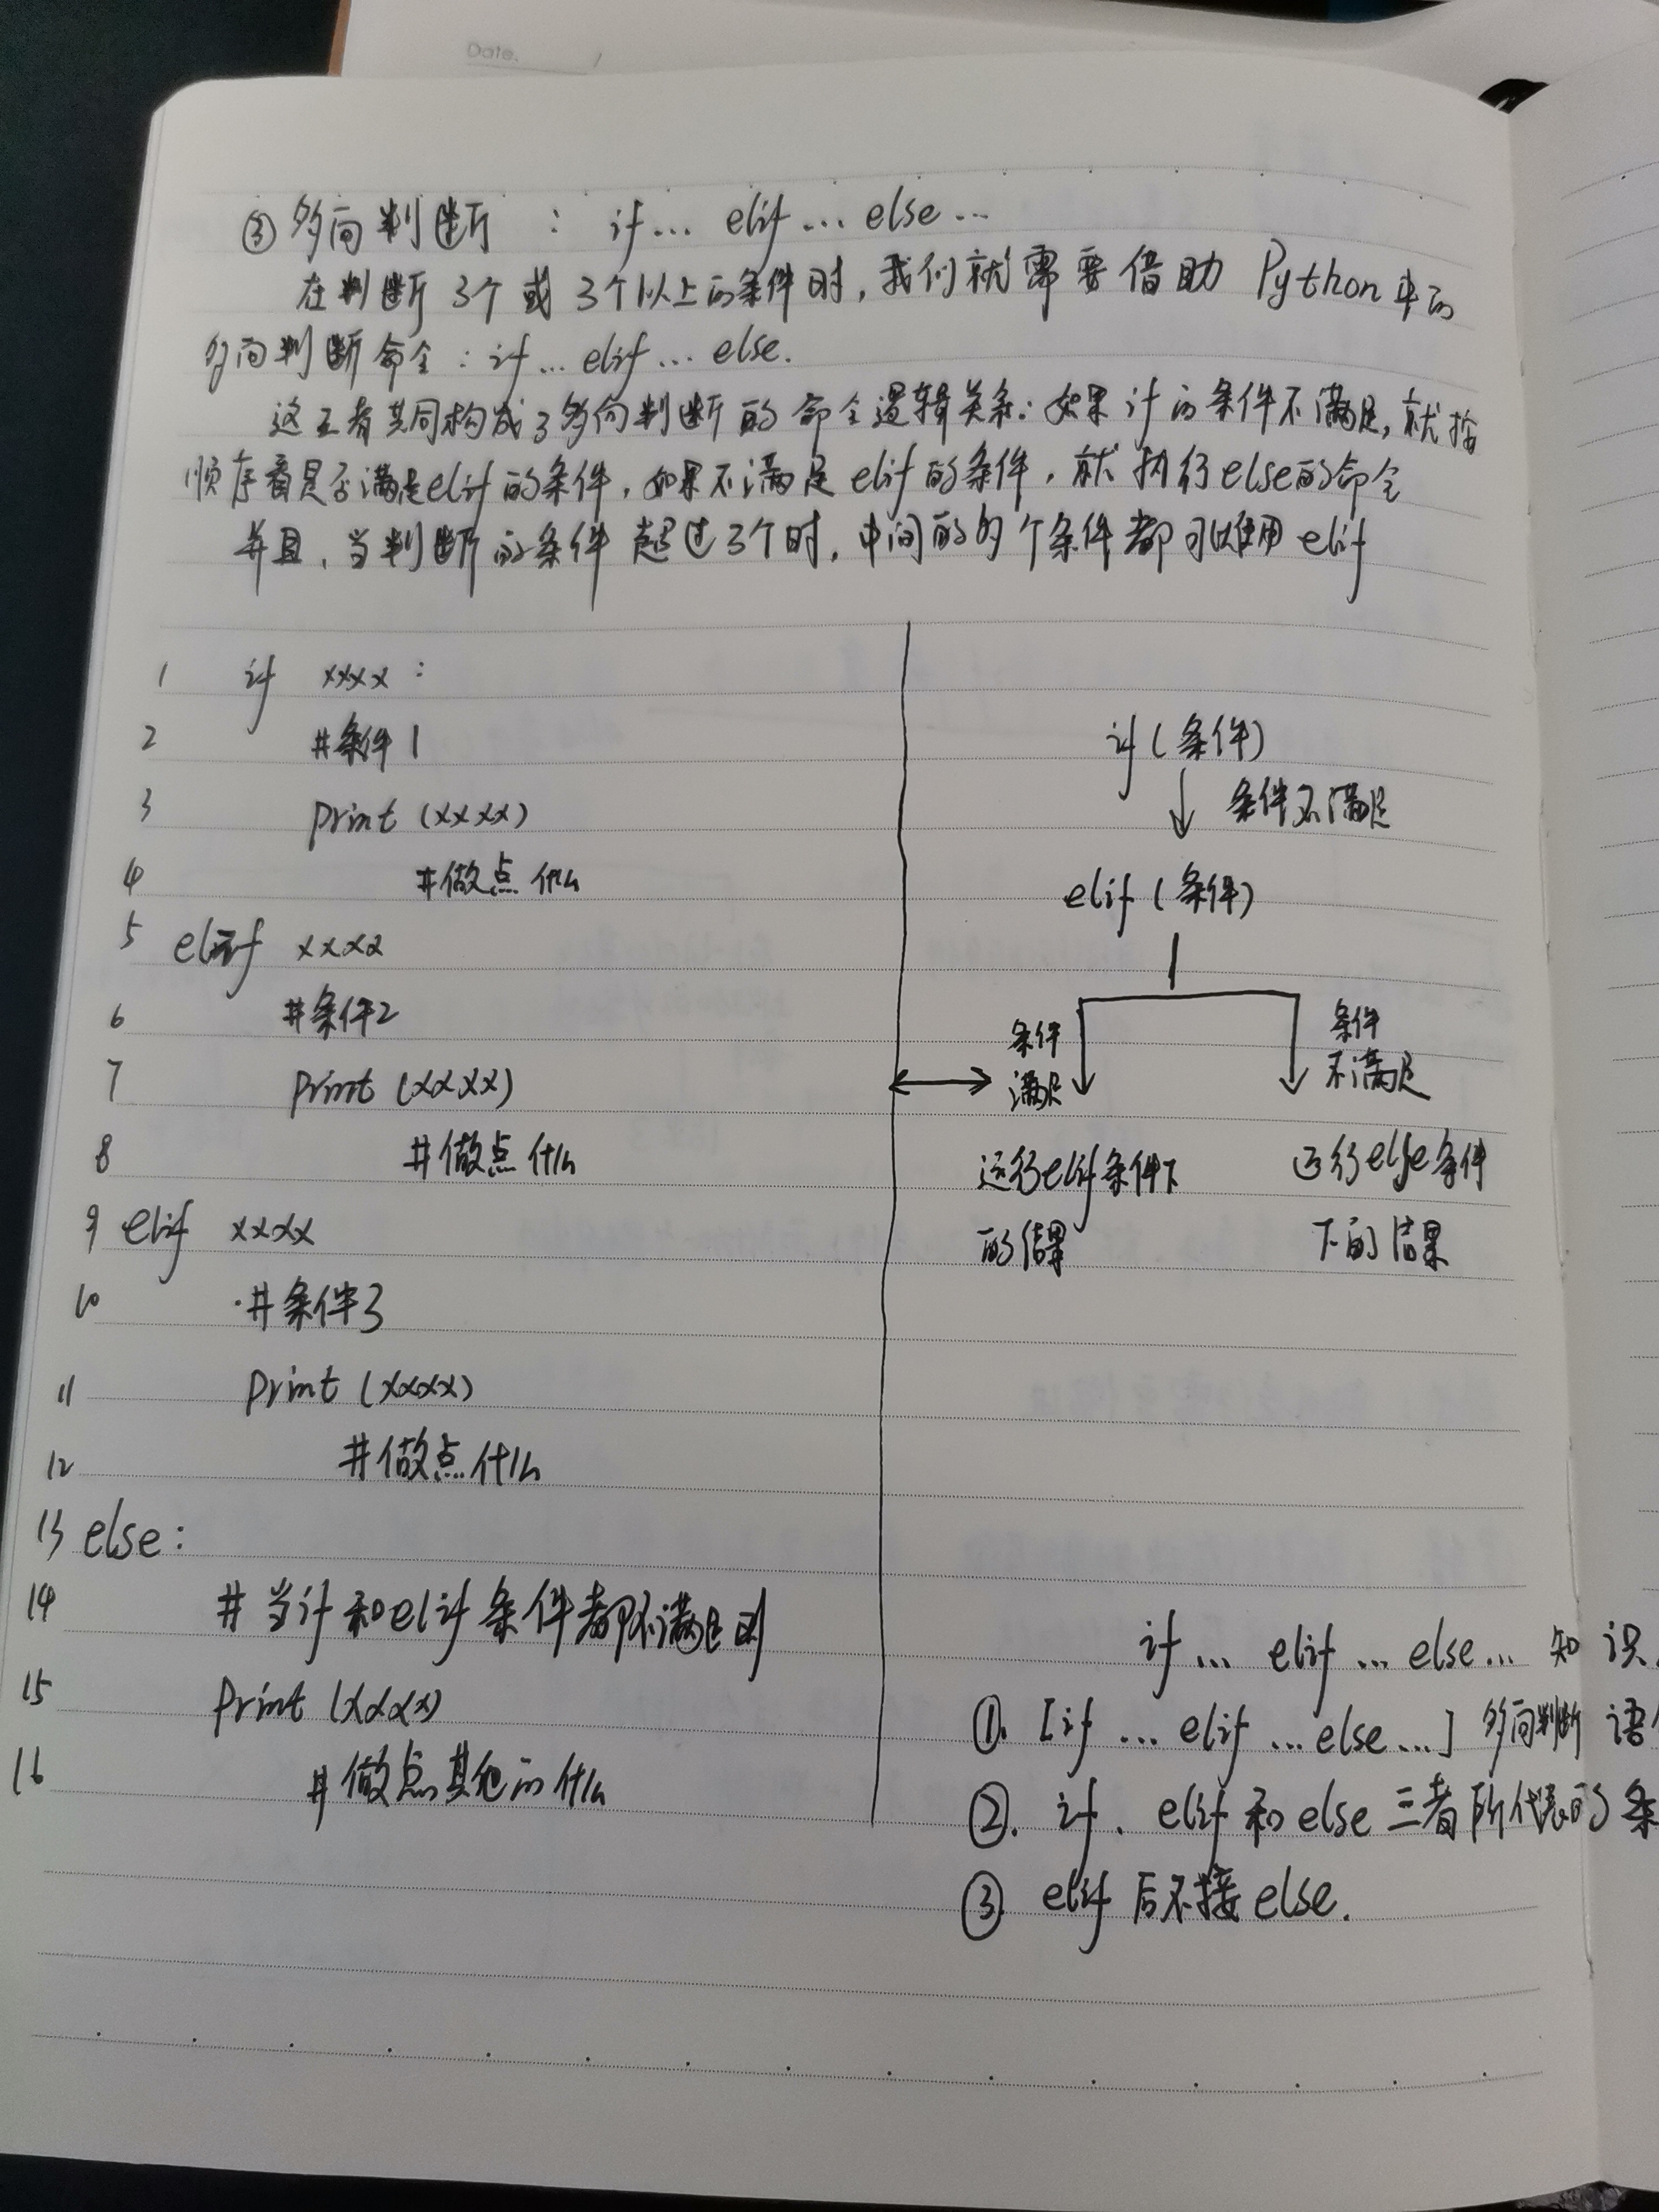 Date.   /
③ 多向判断 : if... elif... else...
在判断3个或3个以上的条件时,我们就需要借助 Python 中的
多向判断命令: if... elif... else.
这三者共同构成了多向判断的命令逻辑关系:如果if的条件不满足,就按
顺序看是否满足elif的条件,如果不满足elif的条件,就执行else的命令
并且,当判断的条件超过3个时,中间的多个条件都可以使用elif
1 if xxxx :
2 #条件1
3 print (xxxx)
4 #做点什么
5 elif xxxx
6 #条件2
7 print (xxxx)
8 #做点什么
9 elif xxxx
10 #条件3
11 print (xxxx)
12 #做点什么
13 else:
14 #当if和elif条件都不满足时
15 print (xxxx)
16 #做点其他的什么
if (条件)
条件不满足
elif (条件)
条件
满足
条件
不满足
运行elif条件下
的结果
运行else条件
下的结果
if... elif... else... 知识
①. [if ... elif ... else...] 多向判断 语
②. if、elif 和 else 三者所代表的条
③ elif后不接else.